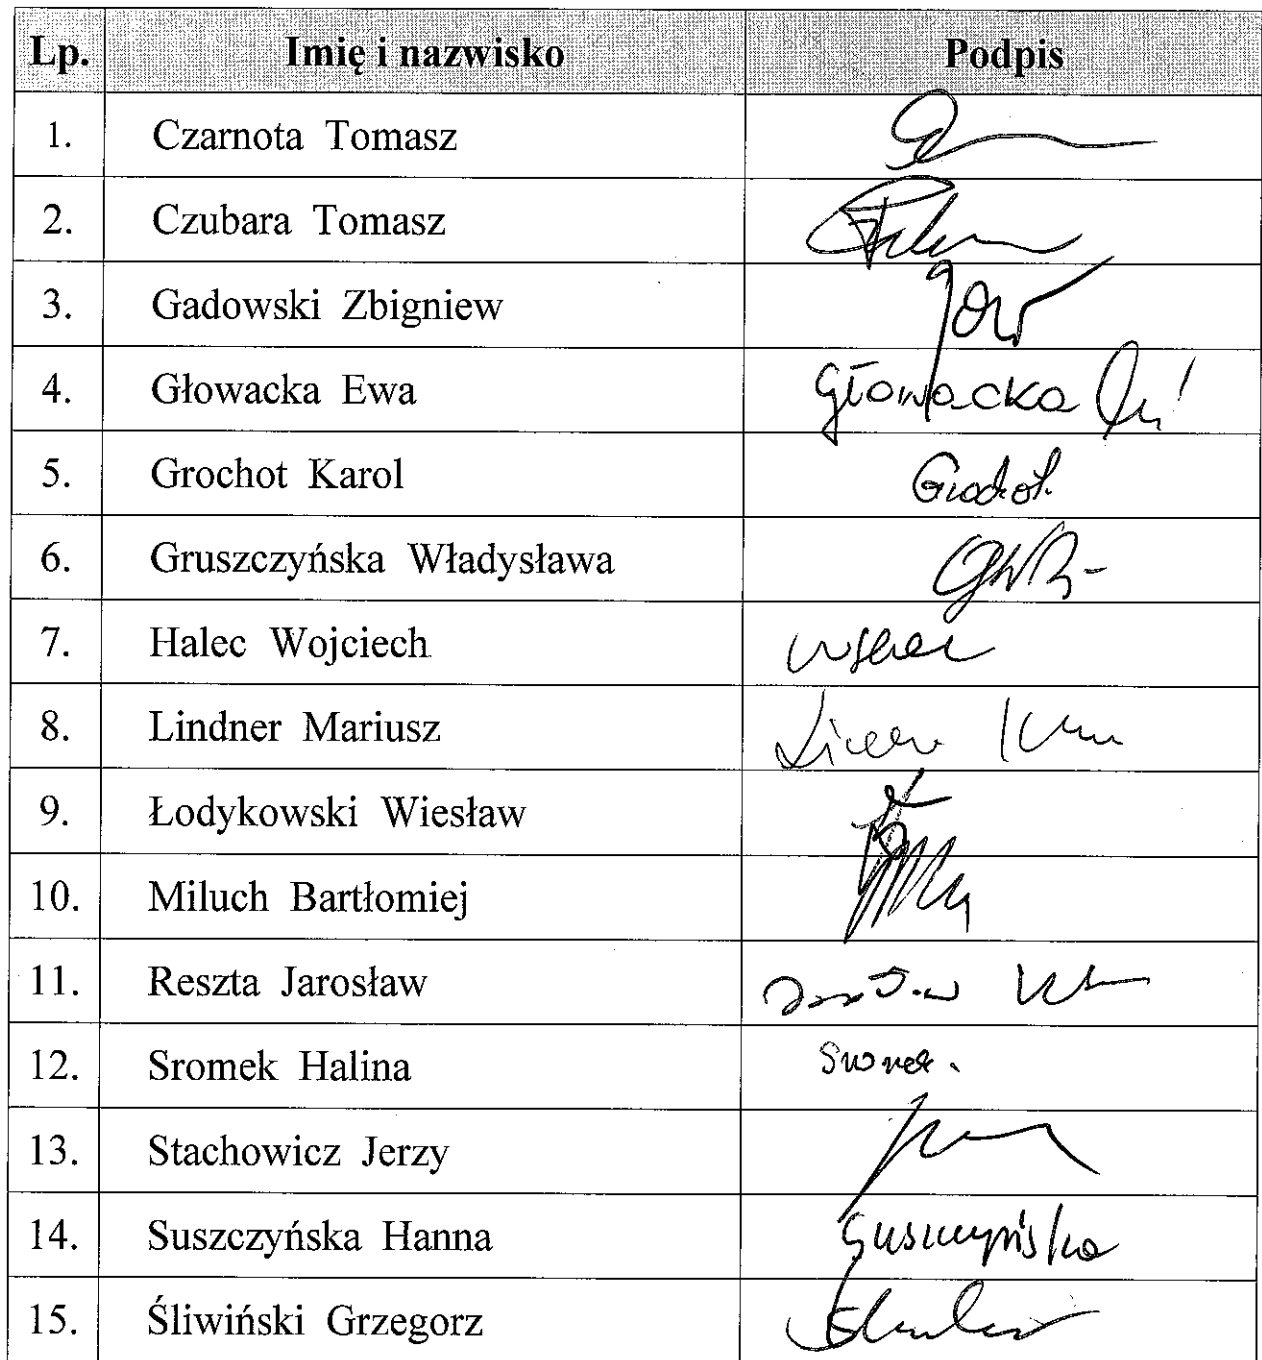 Lp. Imię i nazwisko Podpis
1. Czarnota Tomasz
2. Czubara Tomasz
3. Gadowski Zbigniew
4. Głowacka Ewa Głowacka
5. Grochot Karol Grochot.
6. Gruszczyńska Władysława
7. Halec Wojciech
8. Lindner Mariusz
9. Łodykowski Wiesław
10. Miluch Bartłomiej
11. Reszta Jarosław
12. Sromek Halina Sromek.
13. Stachowicz Jerzy
14. Suszczyńska Hanna Suszczyńska
15. Śliwiński Grzegorz